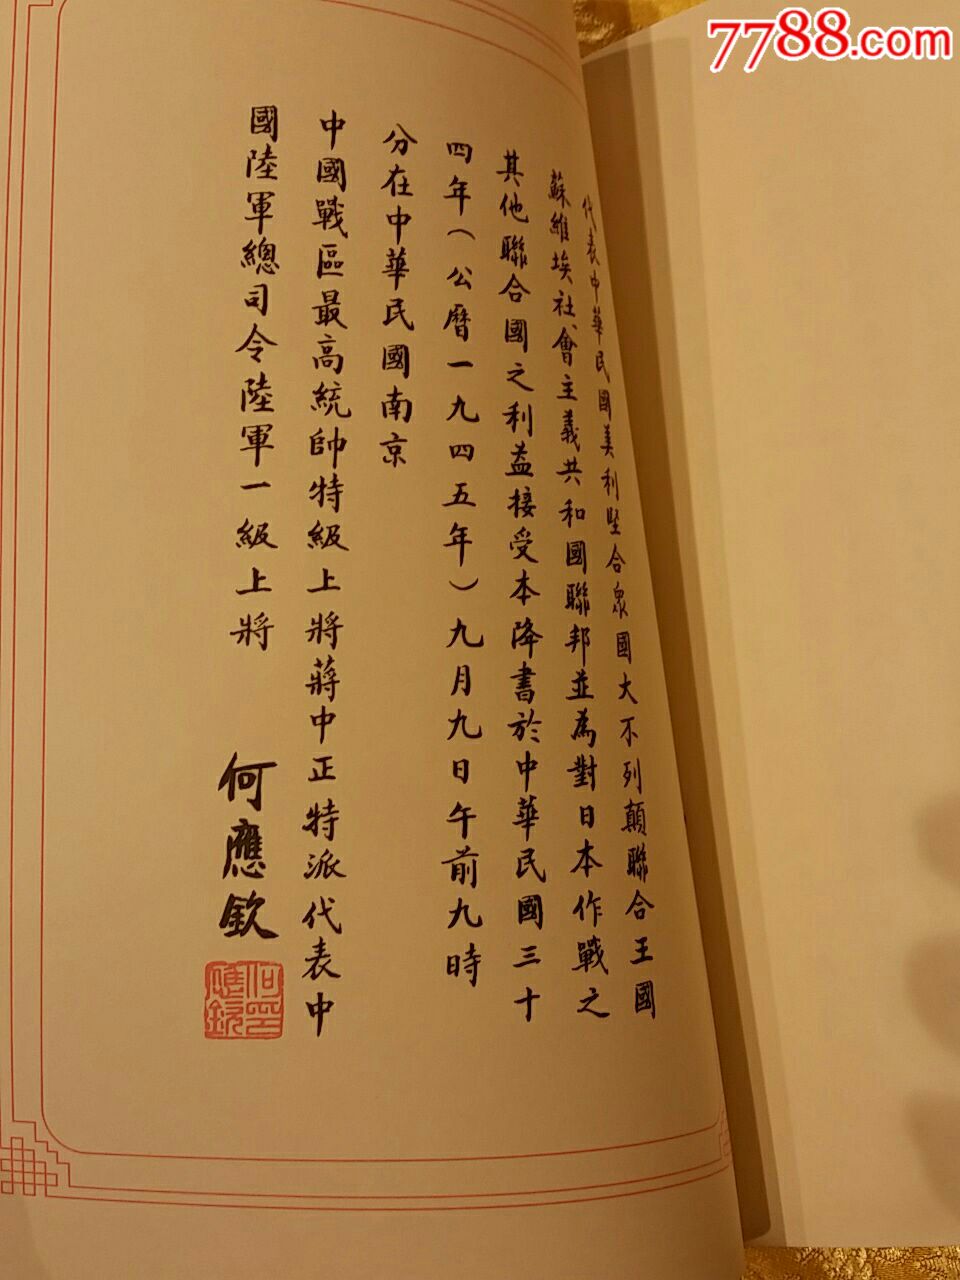 代表中華民國美利堅合衆國大不列顛聯合王國
蘇維埃社會主義共和國聯邦並為對日本作戰之
其他聯合國之利益接受本降書於中華民國三十
四年（公曆一九四五年）九月九日午前九時
分在中華民國南京
中國戰區最高統帥特級上將蔣中正特派代表中
國陸軍總司令陸軍一級上將
何應欽
何應欽印
7788.com